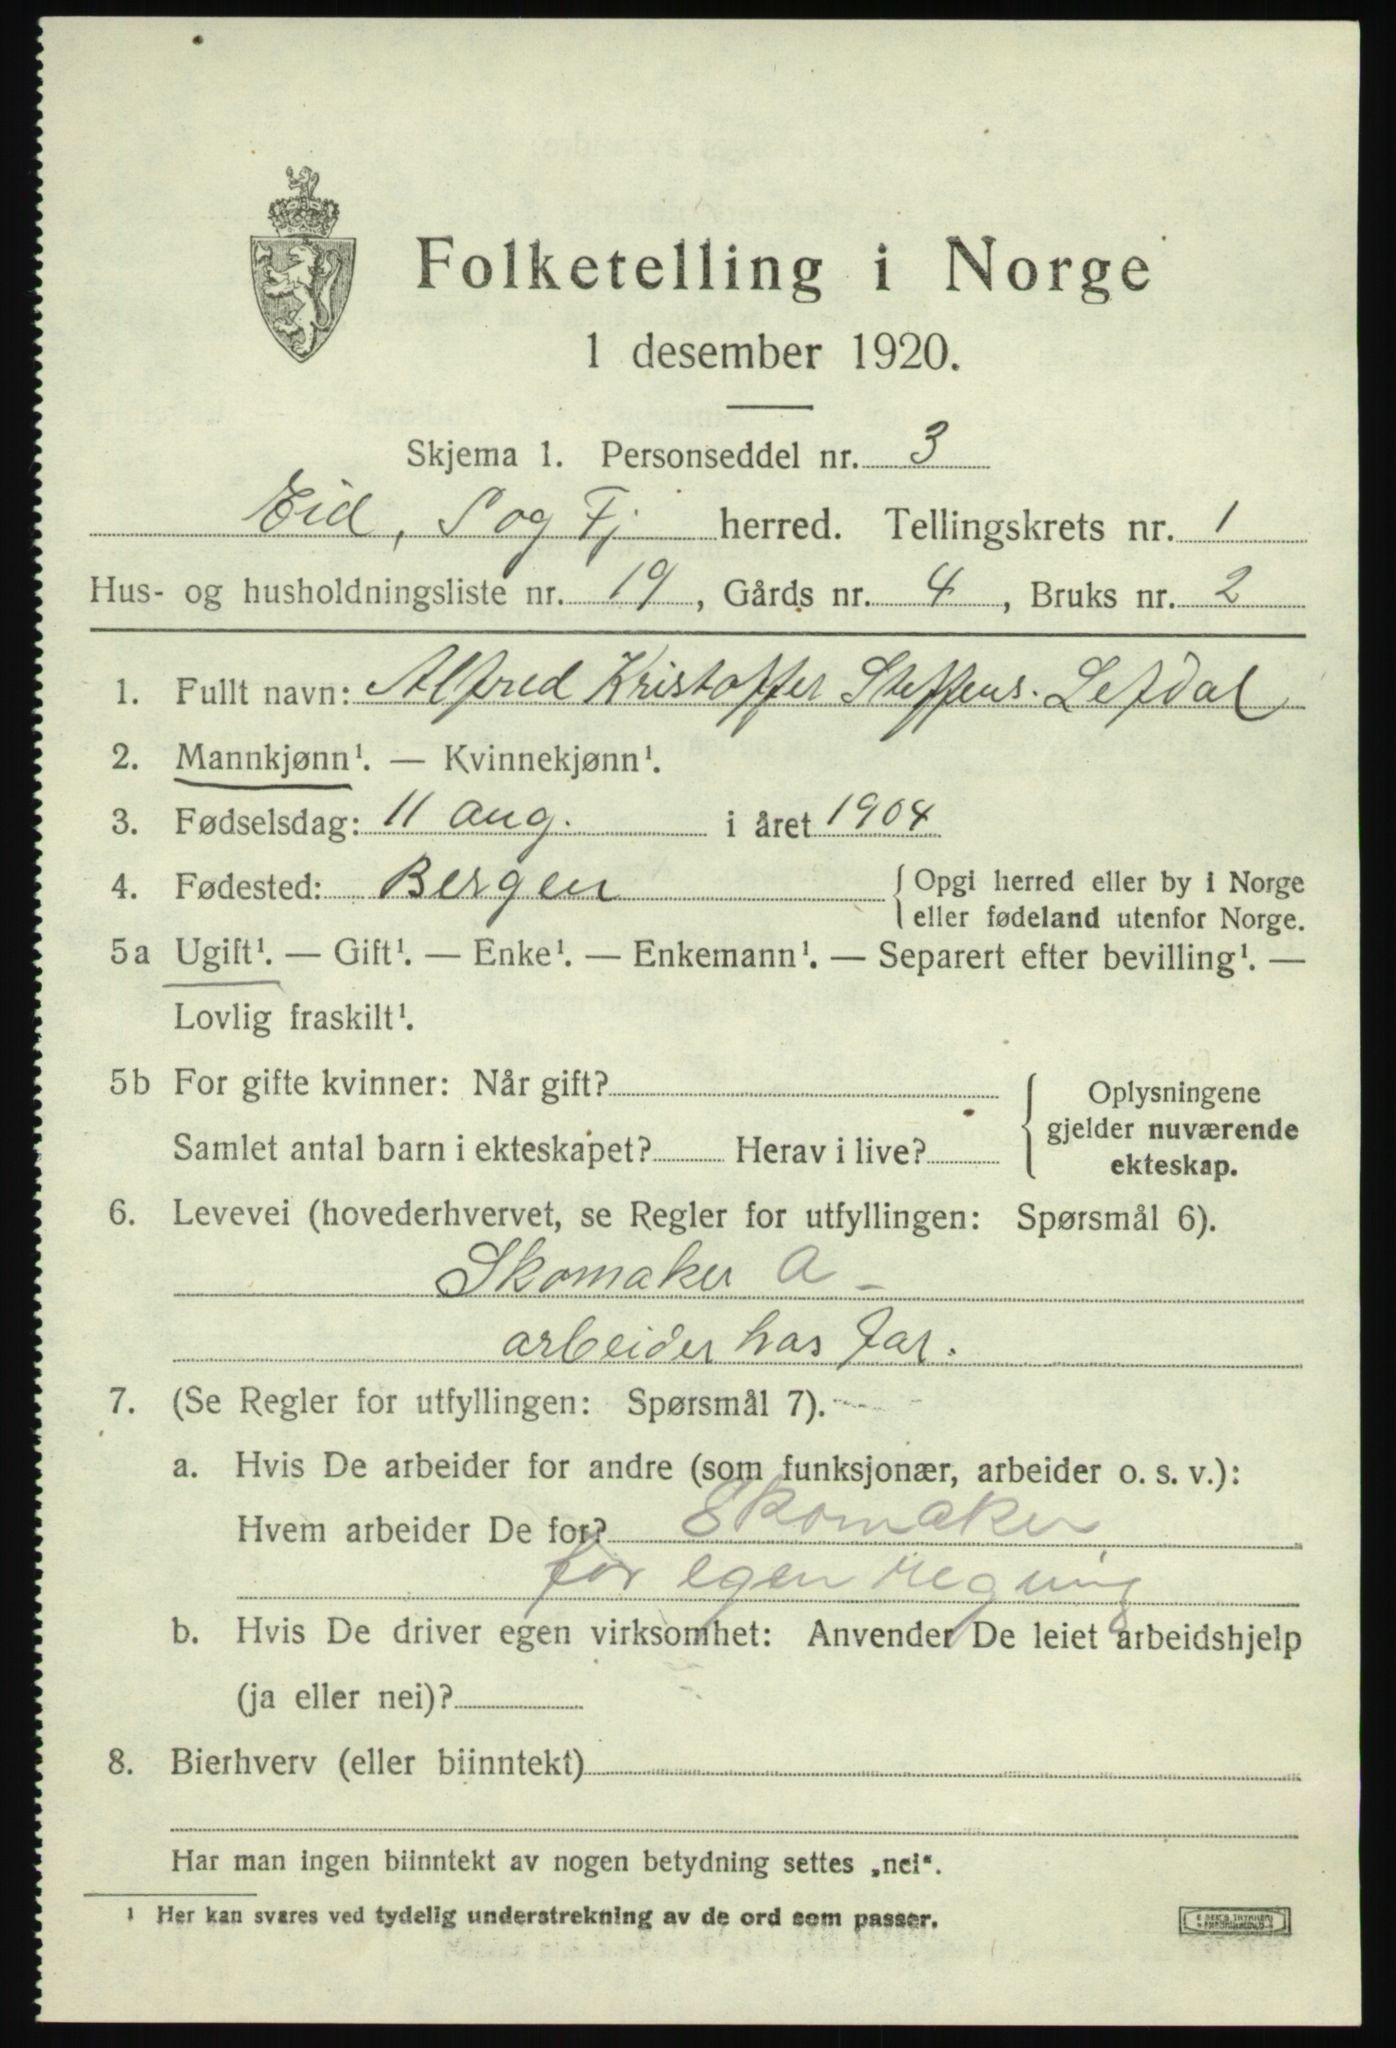 Folketelling i Norge
1 desember 1920.
Skjema 1. Personseddel nr. 3
Eid, S og Fj herred. Tellingskrets nr. 1
Hus- og husholdningsliste nr. 19, Gårds nr. 4, Bruks nr. 2
1. Fullt navn: Alfred Kristoffer Steffens. Lefdal
2. Mannkjønn¹. — Kvinnekjønn¹.
3. Fødselsdag: 11 aug. i året 1904
4. Fødested: Bergen { Opgi herred eller by i Norge
eller fødeland utenfor Norge.
5a Ugift¹. — Gift¹. — Enke¹. — Enkemann¹. — Separert efter bevilling¹. —
Lovlig fraskilt¹.
5b For gifte kvinner: Når gift?
Samlet antal barn i ekteskapet? Herav i live?
{ Oplysningene
gjelder nuværende
ekteskap.
6. Levevei (hovederhvervet, se Regler for utfyllingen: Spørsmål 6).
Skomaker a -
arbeider hos far.
7. (Se Regler for utfyllingen: Spørsmål 7).
a. Hvis De arbeider for andre (som funksjonær, arbeider o. s. v.):
Hvem arbeider De for? Skomaker
for egen regning
b. Hvis De driver egen virksomhet: Anvender De leiet arbeidshjelp
(ja eller nei)?
8. Bierhverv (eller biinntekt)
Har man ingen biinntekt av nogen betydning settes „nei“.
¹ Her kan svares ved tydelig understrekning av de ord som passer.